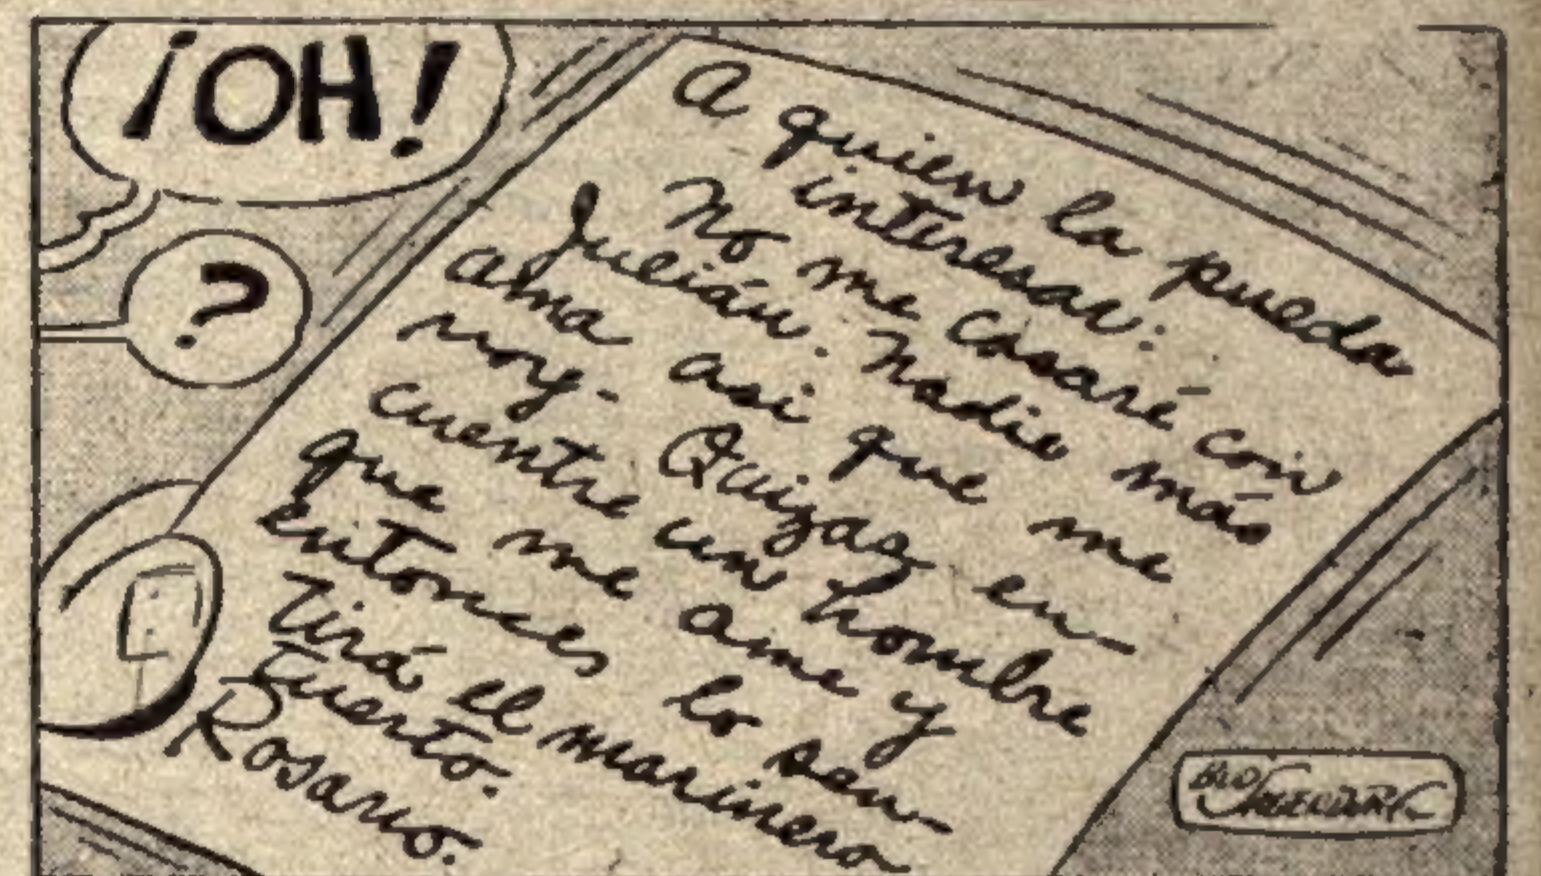 ¡OH!
?
A quien la pueda
interesar:
No me casaré con
Julián. Nadie más
ama asi que me
voy. Quizas en-
cuentre un hombre
que me ame y
entonces lo sen-
tirá el marinero
tuerto.
Rosario.